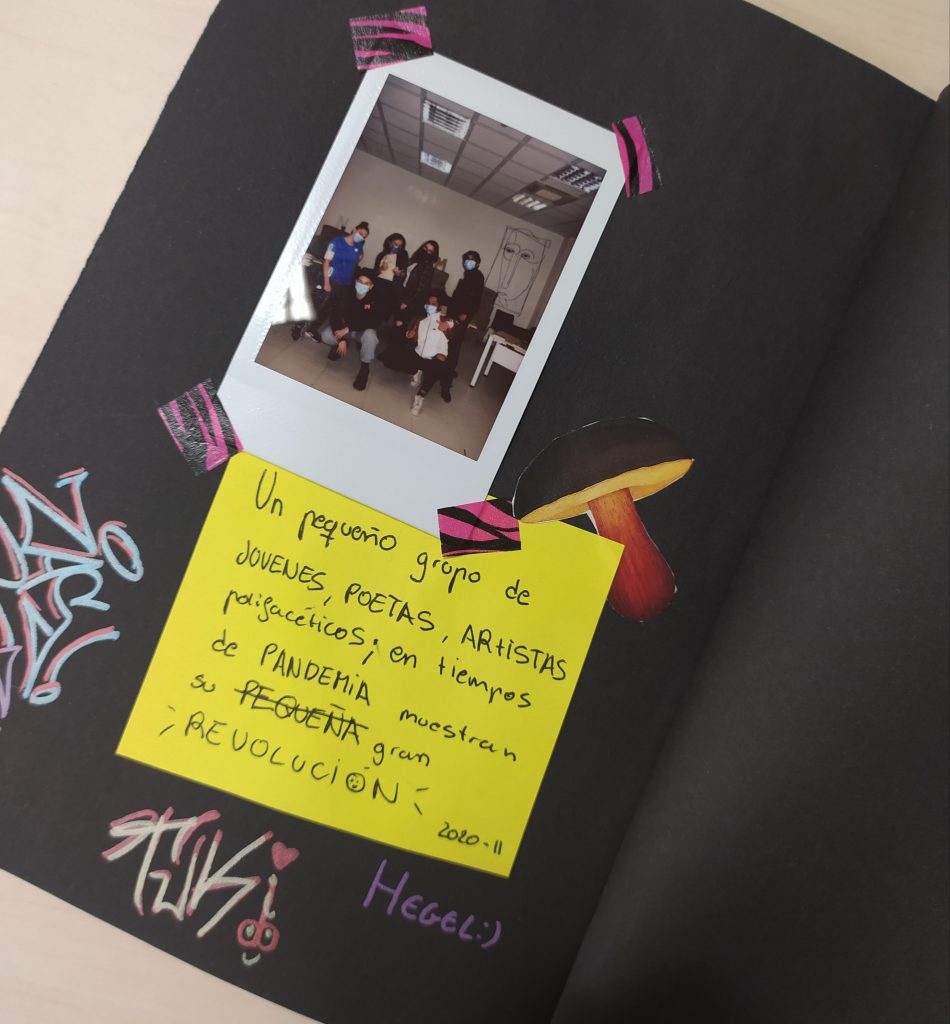 Un pequeño grupo de
JOVENES, POETAS, ARtiSTAS
polifacéticos; en tiempos
de PANDEMiA muestran
su PEQUEÑA gran
¡REVOLUCiÓN!
2020-11
TUKi
HEGEL:)